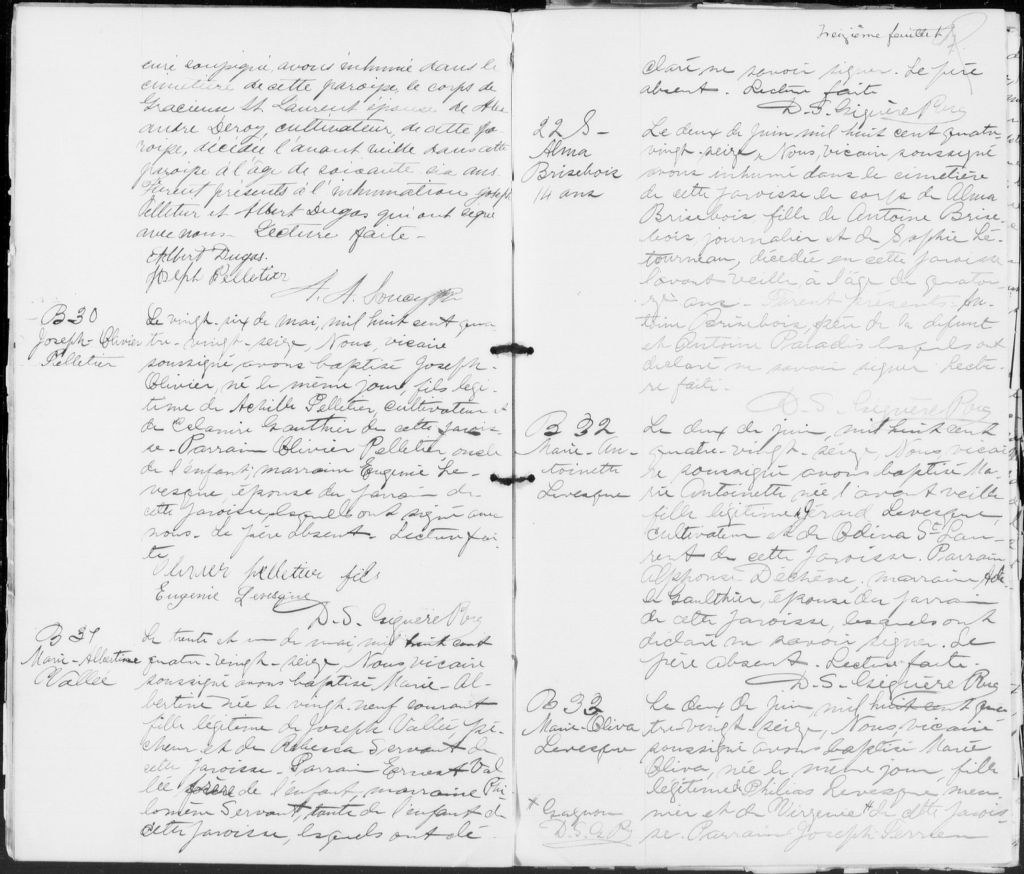 curé soussigné, avons inhumé dans le
cimetière de cette paroisse, le corps de
Gracieuse St Laurent épouse de Alex
andre Deroy, cultivateur, de cette pa
roisse, décédée l'avant veille dans cette
paroisse à l'âge de soixante six ans
Furent présents à l'inhumation Joseph
Pelletier et Albert Dugas qui ont signé
avec nous - Lecture faite -
Albert Dugas.
Joseph Pelletier
B 30
Joseph-Olivier
Pelletier
Le vingt-six de mai, mil huit cent qua
tre-vingt-seize, Nous, vicaire
soussigné avons baptisé Joseph-
Olivier, né le même jour, fils légi-
time de Achille Pelletier, cultivateur et
de Célanire Gauthier de cette parois
se - Parrain Olivier Pelletier, oncle
de l'enfant, marraine Eugénie Le-
vesque, épouse du parrain de
cette paroisse, lesquels ont signé avec
nous. Le père absent. Lecture fai-
te
Olivier pelletier fils
Eugenie Levesque
B 31
Marie-Albertine
Vallée
Le trente et un de mai, mil huit cent
quatre-vingt-seize, Nous vicaire
soussigné avons baptisé Marie-Al-
bertine née le vingt-neuf courant
fille légitime de Joseph Vallée, pê-
cheur et de Rebecca Servant de
cette paroisse - Parrain Ernest Val
lée frère de l'enfant, marraine Phi
lomène Servant, tante de l'enfant de
cette paroisse, lesquels ont dé-
Treizième feuillet
claré ne savoir signer. Le père
absent. Lecture faite
22 S-
Alma
Brisebois
14 ans
Le deux de juin mil huit cent quatre
vingt-seize, Nous, vicaire soussigné
avons inhumé dans le cimetière
de cette paroisse le corps de Alma
Brisebois fille de Antoine Brise-
bois, journalier et de Sophie Lé-
tourneau, décédée en cette paroisse
l'avant veille, à l'âge de quator-
ze ans. Furent présents, An-
toine Brisebois, père de la défunte
et Antoine Paradis lesquels ont
déclaré ne savoir signer Lectu-
re faite.
B 32
Marie-An-
toinette
Levesque
Le deux de juin, mil huit cent
quatre-vingt-seize, Nous vicai-
re soussigné avons baptisé Ma-
rie Antoinette née l'avant veille
fille légitime Gérard Levesque,
cultivateur et de Odina St Lau-
rent de cette paroisse. Parrain
Alphonse Dechêne, marraine Adè-
le Gaulthier, épouse du parrain
de cette paroisse, lesquels ont
déclaré ne savoir signer. Le
père absent. Lecture faite.
B 33
Marie-Oliva
Levesque
Le deux de juin, mil huit cent qua-
tre-vingt-seize, Nous, vicaire
soussigné avons baptisé Marie
Oliva, née le même jour, fille
légitime de Philias Levesque, meu-
nier et de Virginie + de cette parois-
se. Parrain Joseph
+ Gagnon